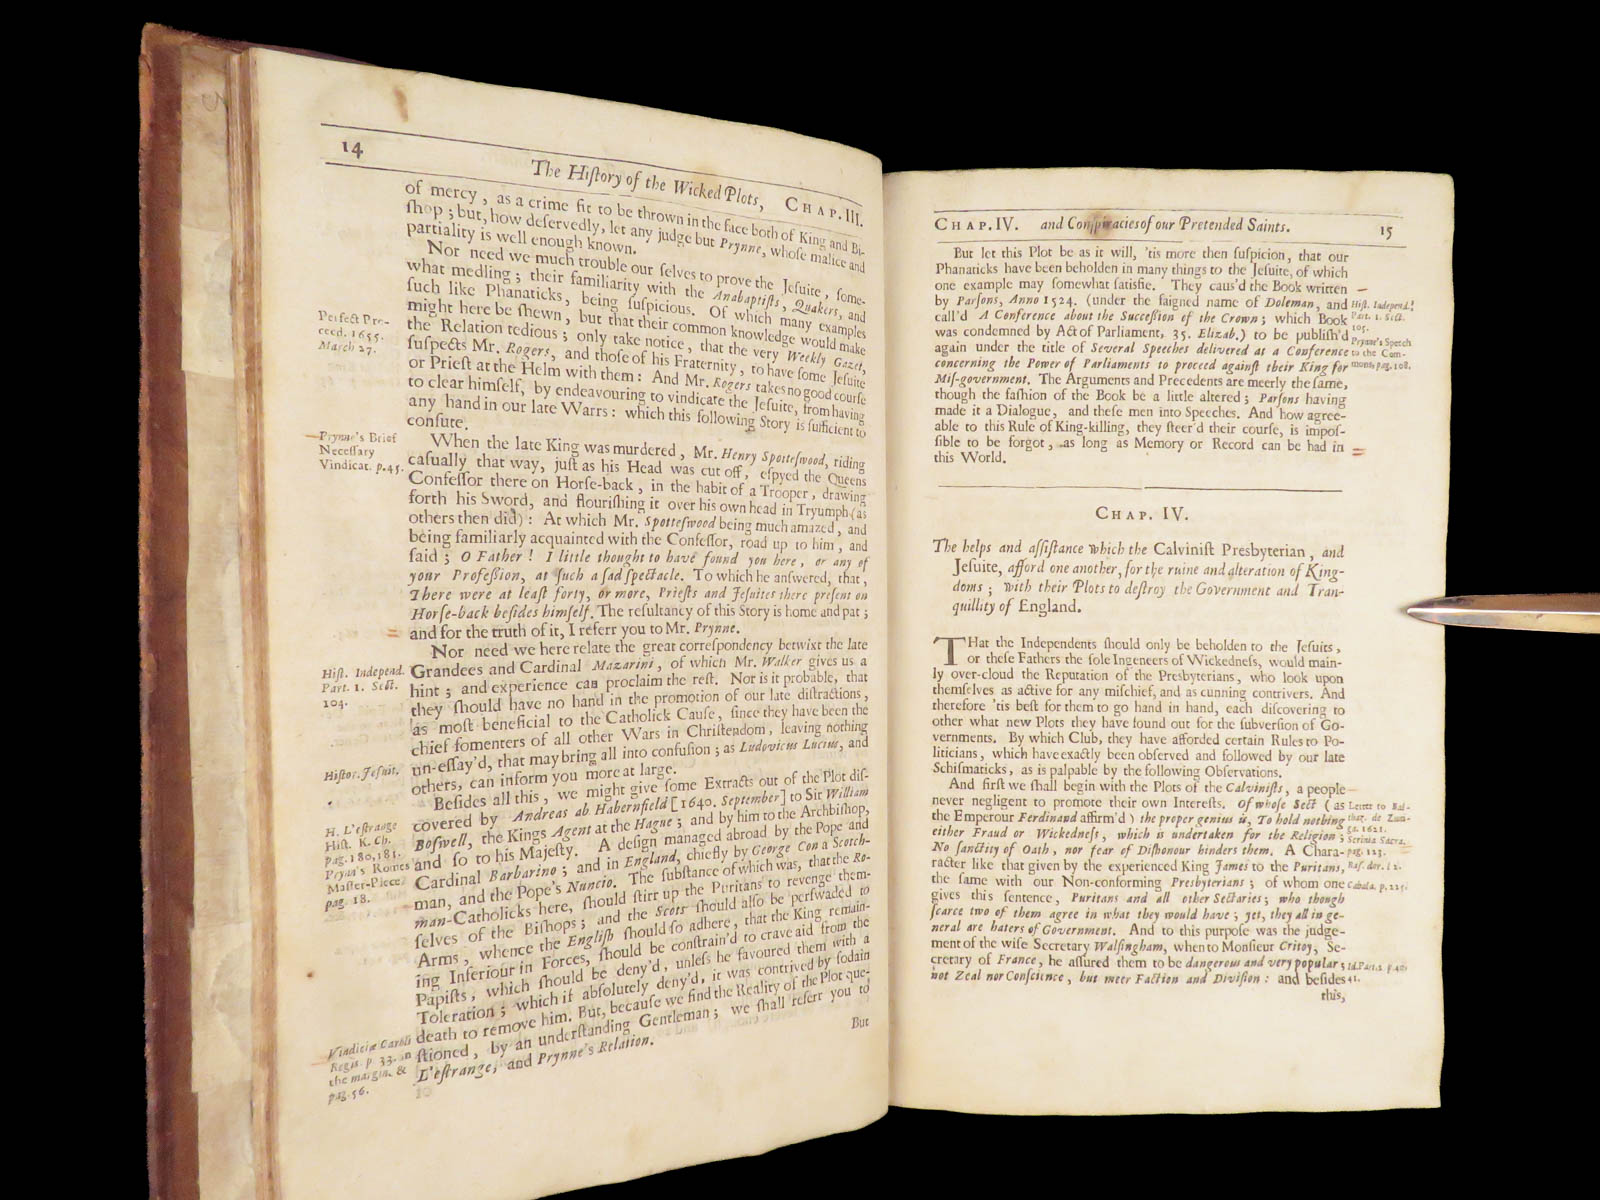 14
The Hiſtory of the Wicked Plots, CHAP. III.
of mercy, as a crime fit to be thrown in the face both of King and Bi-
ſhop; but, how deſervedly, let any judge but Prynne, whoſe malice and
partiality is well enough known.
Nor need we much trouble our ſelves to prove the Jeſuite, ſome-
what medling; their familiarity with the Anabaptiſts, Quakers, and
ſuch like Phanaticks, being ſuſpicious. Of which many examples
might here be ſhewn, but that their common knowledge would make
the Relation tedious; only take notice, that the very Weekly Gazet,
ſuſpects Mr. Rogers, and thoſe of his Fraternity, to have ſome Jeſuite
or Prieſt at the Helm with them: And Mr. Rogers takes no good courſe
to clear himſelf, by endeavouring to vindicate the Jeſuite, from having
any hand in our late Warrs: which this following Story is ſufficient to
confute.
Perfect Pro-
ceed. 1655.
March 27.
When the late King was murdered, Mr. Henry Spotteſwood, riding
caſually that way, juſt as his Head was cut off, eſpyed the Queens
Confeſſor there on Horſe-back, in the habit of a Trooper, drawing
forth his Sword, and flouriſhing it over his own head in Tryumph (as
others then did): At which Mr. Spotteſwood being much amazed, and
being familiarly acquainted with the Confeſſor, road up to him, and
ſaid; O Father! I little thought to have found you here, or any of
your Profeſſion, at ſuch a ſad ſpectacle. To which he anſwered, that,
There were at leaſt forty, or more, Prieſts and Jeſuites there preſent on
Horſe-back beſides himſelf. The reſultancy of this Story is home and pat;
and for the truth of it, I referr you to Mr. Prynne.
Prynne's Brief
Neceſſary
Vindicat. p. 45.
Nor need we here relate the great correſpondency betwixt the late
Grandees and Cardinal Mazarini, of which Mr. Walker gives us a
hint; and experience can proclaim the reſt. Nor is it probable, that
they ſhould have no hand in the promotion of our late diſtractions,
as moſt beneficial to the Catholick Cauſe, ſince they have been the
chief fomenters of all other Wars in Chriſtendom, leaving nothing
un-eſſay'd, that may bring all into confuſion; as Ludovicus Lucius, and
others, can inform you more at large.
Hiſt. Independ.
Part. 1. Sect.
104.
Hiſtor. Jeſuit.
Beſides all this, we might give ſome Extracts out of the Plot diſ-
covered by Andreas ab Habernfield [1640. September] to Sir William
Boſwell, the Kings Agent at the Hague; and by him to the Archbiſhop,
and ſo to his Majeſty. A deſign managed abroad by the Pope and
Cardinal Barbarino; and in England, chiefly by George Con a Scotch-
man, and the Pope's Nuncio. The ſubſtance of which was, that the Ro-
man-Catholicks here, ſhould ſtirr up the Puritans to revenge them-
ſelves of the Biſhops; and the Scots ſhould alſo be perſwaded to
Arms, whence the Engliſh ſhould ſo adhere, that the King remain-
ing Inferiour in Forces, ſhould be conſtrain'd to crave aid from the
Papiſts, which ſhould be deny'd, unleſs he favoured them with a
Toleration; which if abſolutely deny'd, it was contrived by ſodain
death to remove him. But, becauſe we find the Reality of the Plot que-
ſtioned, by an underſtanding Gentleman; we ſhall referr you to
L'eſtrange, and Prynne's Relation.
H. L'eſtrange
Hiſt. K. Ch.
pag. 180, 181.
Pryn's Romes
Maſter-Piece
pag. 18.
Vindiciæ Caroli
Regis. p. 33. in
the margin. &
pag. 56.
But
CHAP. IV. and Conſpiracies of our Pretended Saints. 15
But let this Plot be as it will, 'tis more then ſuſpicion, that our
Phanaticks have been beholden in many things to the Jeſuite, of which
one example may ſomewhat ſatisfie. They caus'd the Book written
by Parſons, Anno 1524. (under the faigned name of Doleman, and
call'd A Conference about the Succeſſion of the Crown; which Book
was condemned by Act of Parliament, 35. Elizab.) to be publiſh'd
again under the title of Several Speeches delivered at a Conference
concerning the Power of Parliaments to proceed againſt their King for
Miſ-government. The Arguments and Precedents are meerly the ſame,
though the faſhion of the Book be a little altered; Parſons having
made it a Dialogue, and theſe men into Speeches. And how agree-
able to this Rule of King-killing, they ſteer'd their courſe, is impoſ-
ſible to be forgot, as long as Memory or Record can be had in
this World.
Hiſt. Independ.
Part. 1. Sect.
105.
Prynne's Speech
to the Com-
mons, pag. 108.
CHAP. IV.
The helps and aſſiſtance which the Calviniſt Presbyterian, and
Jeſuite, afford one another, for the ruine and alteration of King-
doms; with their Plots to deſtroy the Government and Tran-
quillity of England.
THat the Independents ſhould only be beholden to the Jeſuits,
or theſe Fathers the ſole Ingeneers of Wickedneſs, would main-
ly over-cloud the Reputation of the Presbyterians, who look upon
themſelves as active for any miſchief, and as cunning contrivers. And
therefore 'tis beſt for them to go hand in hand, each diſcovering to
other what new Plots they have found out for the ſubverſion of Go-
vernments. By which Club, they have afforded certain Rules to Po-
liticians, which have exactly been obſerved and followed by our late
Schiſmaticks, as is palpable by the following Obſervations.
And firſt we ſhall begin with the Plots of the Calviniſts, a people
never negligent to promote their own Intereſts. Of whoſe Sect (as
the Emperour Ferdinand affirm'd) the proper genius is, To hold nothing
either Fraud or Wickedneſs, which is undertaken for the Religion;
No ſanctity of Oath, nor fear of Diſhonour hinders them. A Chara-
racter like that given by the experienced King James to the Puritans,
the ſame with our Non-conforming Presbyterians; of whom one
gives this ſentence, Puritans and all other Sectaries; who though
ſcarce two of them agree in what they would have; yet, they all in ge-
neral are haters of Government. And to this purpoſe was the judge-
ment of the wiſe Secretary Walſingham, when to Monſieur Critoy, Se-
cretary of France, he aſſured them to be dangerous and very popular;
not Zeal nor Conſcience, but meer Faction and Diviſion: and beſides
Letter to Bal-
thaz. de Zun-
ga. 1621.
Scrinia Sacra.
pag. 123.
Baſ. dor. l 2.
Cabala. p. 225.
this,